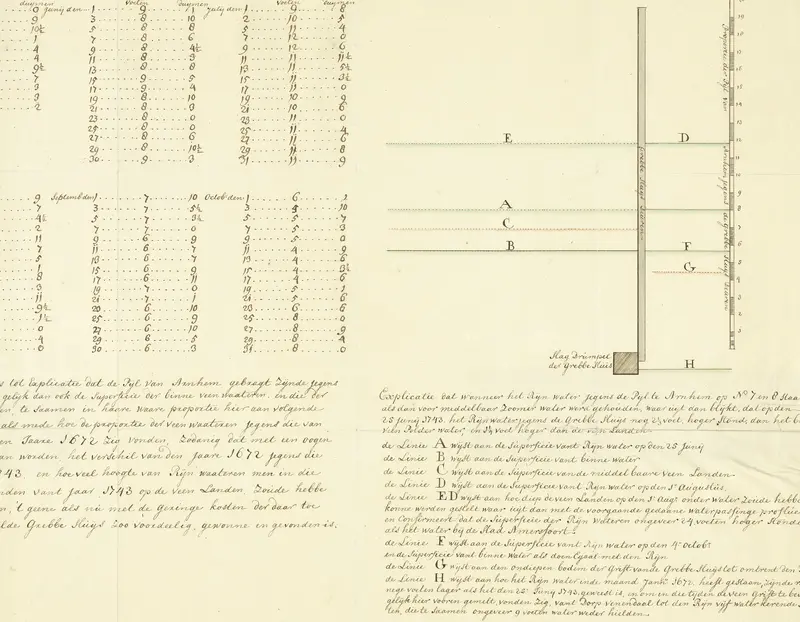 duymen voeten duymen voeten duymen
0 Junij den 1 9 1 Julij den 1 9 8
3 8 10 2 10 5
10½ 5 8 8 5 11 4
1 7 8 6 7 12 0
4 9 8 4½ 9 12 6
4 11 8 3 11 11 11½
9½ 13 8 13 11 5½
7 15 9 5 15 11 3½
3 17 9 4 17 11 0
3 19 8 10 19 10 9
2 21 8 3 21 10 6
23 8 0 23 11 0
25 8 0 25 11 4
27 8 6 27 11 6
29 8 10½ 29 11 8
30 9 3 31 11 9
9 September 1 7 10 Octob den 1 6 2
7 3 7 5½ 3 5 10
4½ 5 7 3½ 5 5 7
2 7 7 0 7 5 3
11 9 6 9 9 5 0
7 11 6 7 11 4 9
5 13 6 7 13 4 6
1 15 6 9 15 4 3½
8 17 6 11 17 4 6
3 19 7 0 19 5 1
11 21 7 1 21 5 6
9½ 20 6 10 23 6 6
1½ 25 6 9 25 8 0
0 27 6 10 27 8 9
4 29 6 4 29 8 4
0 30 6 3 31 8 0
s tot Explicatie dat de Pyl van Arnhem gebragt Zynde jegens
gelyk dan ook de Superficie der binne veenwaateren, en die der
en, te Saamen in haare waare proportie hier aan volgende
als mede hoe de proportie der veen waateren jegens die van
en Jaare 1672 Zig vonden, Zodanig dat met een oogen
an worden het verschil van den jaare 1672 jegens die
743, en hoe veel hoogte van Rijn waateren men in die
nden vant Jaar 1743 op de veen Landen Zoude hebbe
n, 't gene als nu met de geringe kosten der daar toe
lde Grebbe Sluys Zoo voordeelig, gewonne en gevonden is.
E D
A
C
B F
G
H
Grebbe Sluys Deuren
Proportie der Pyl van
Arnhem jegens de Grebbe Sluys Deuren
Slag Drümpel
der Grebbe Sluis
Explicatie dat wanneer het Rijn water jegens de Pyl te Arnhem op No. 7 en 8 staa
als dan voor middelbaar Zoomer water werd gehouden, waar uyt dan blijkt, dat op den
25 Junij 1743. het Rijnwater jegens de Grebbe Sluys nog 2½ voet hoger Stond; dan het b
veen Polder water,
de Linie A wyst aan de Superficie vant Rijn water op den 25 Junij
de Linie B wyst aan de Superficie vant binne water
de Linie C wyst aan de Superficie van de middelbaare veen Landen
de Linie D wyst aan de Superficie vant Rijn water op den 1e Augustus,
de Linie ED wyst aan hoe diep de veen Landen op den 1e Augs onder water Zoude hebbe
konne werden gestelt waar uyt dan met de voorgaande gedaane waterpassinge profluee
en Confirmeert dat de Superficie der Rijn wateren ongeveer 24 voeten hoger Stonde
als het water bij de Stad Amersfoort.
de Linie F wyst aan de Superficie vant Rijn water op den 4e Octobr
en de Superficie vant binne water als doen Egaal met den Rijn
de Linie G wyst aan den ondiepen bodem der Grift van de Grebbe Sluys tot omtrent den
de Linie H wyst aan hoe het Rijn water inde maand Janry 1672. heeft gestaan, Zijnde
nege voeten lager als het den 25e Junij 1743. geweest is, en om in die tijden de veen Grift te
gelyk hier vooren gemelt, vonden Zig, vant Dorp Venendaal tot den Rijn vijf water keerende
ten, die te Saamen ongeveer 9 voeten water weder hielden.